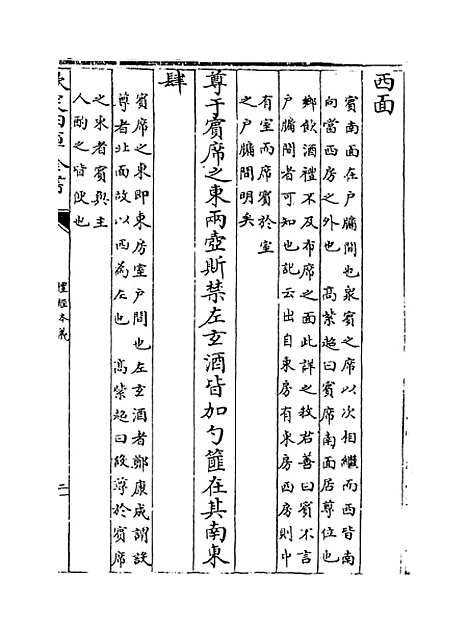 西面
賓南面在戶牖間也衆賓之席以次相繼而西皆南
向當西房之外也　高紫超曰賓席南面居尊位也
鄉飲酒禮不及布席之面此詳之敖君善曰賓不言
戶牖間者可知也記云出自東房有東房西房則中
有室而席賓於室
之戶牖間明矣
尊于賓席之東兩壺斯禁左玄酒皆加勺篚在其南東
肆
賓席之東即東房室戶間也左玄酒者鄭康成謂設
尊者北面故以西為左也　高紫超曰設尊於賓席
之東者賓與主
人酌之皆便也
欽定四庫全書
禮經本義